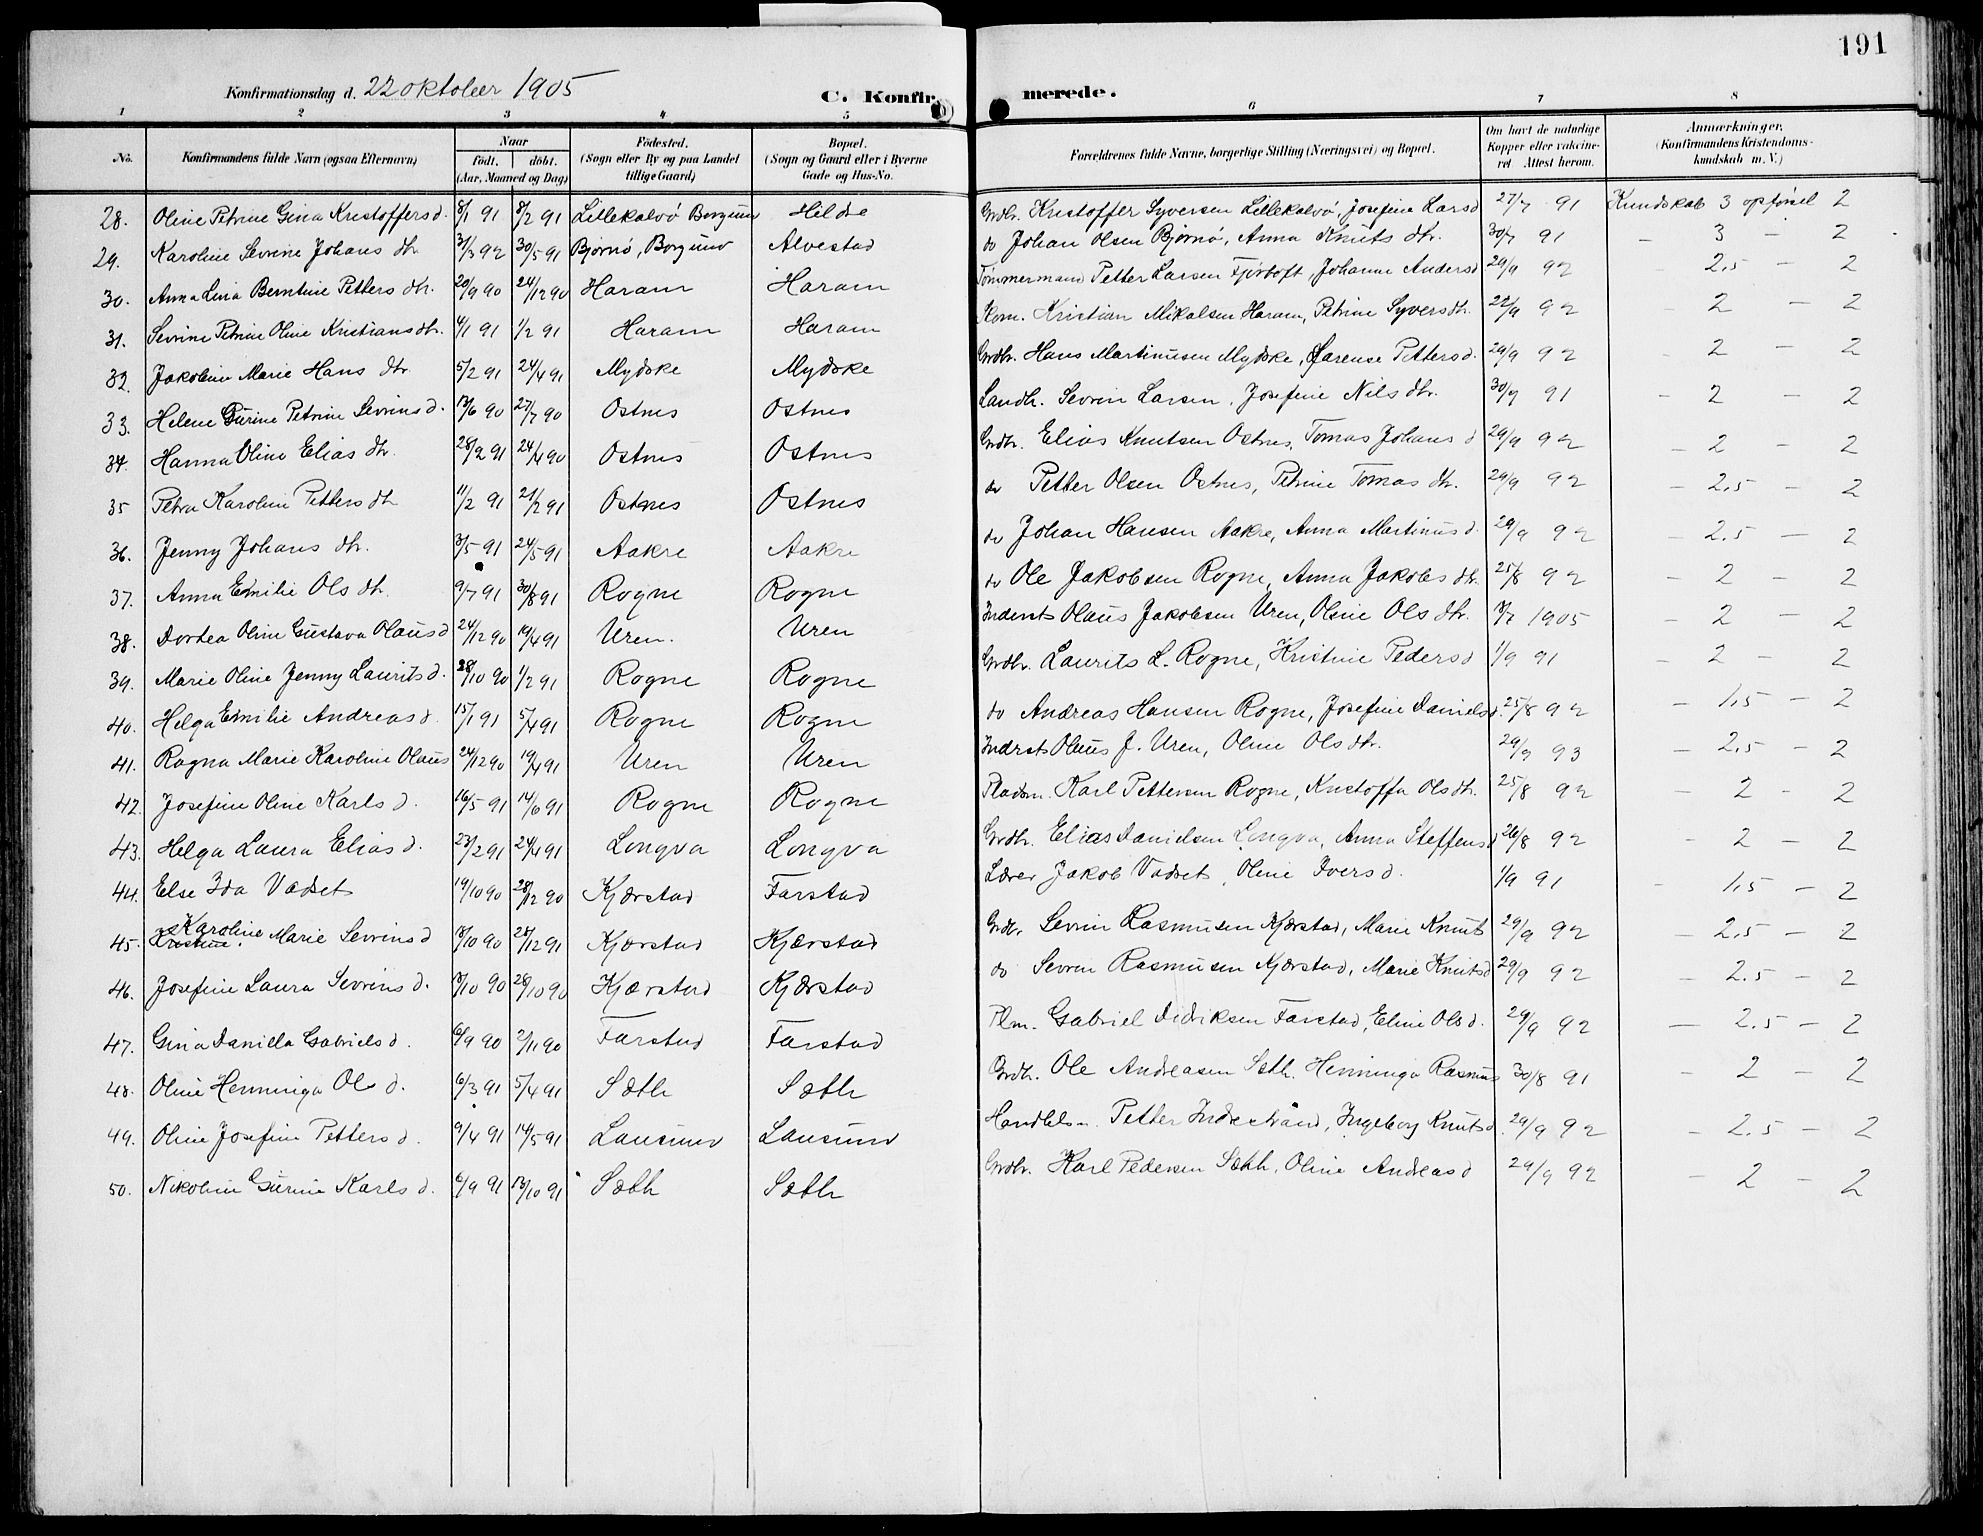 191
Konfirmationsdag d. 22 oktober 1905 C. Konfir- merede.
1 2 3 4 5 6 7 8
No. Konfirmandens fulde Navn (ogsaa Efternavn) Naar født. døbt. (Aar, Maaned og Dag) Fødested. (Sogn eller By og paa Landet tillige Gaard) Bopæl. (Sogn og Gaard eller i Byerne Gade og Hus-No. Forældrenes fulde Navne, borgerlige Stilling (Næringsvei) og Bopæl. Om havt de naturlige Kopper eller vaccineret. Attest herom. Anmærkninger, (Konfirmandens Kristendomskundskab m. V.)
28. Oline Petrine Gina Kristoffersd. 8/1 91 8/2 91 Lillekalvø Borgund Hildre Grdbr. Kristoffer Syversen Lillekalvø, Josefine Larsd 27/7 91 Kundskab 3 opførsel 2
29. Karoline Sevrine Johans dtr. 31/3 92 30/5 91 Bjørnø, Borgund Alvestad do Johan Olsen Bjørnø, Anna Knuts dtr. 30/7 91 - 3 - 2
30. Anna Lina Berntine Petters dtr. 20/9 90 24/12 90 Haram Haram Tømmermand Petter Larsen Fjørtoft, Johanne Andersd 29/9 92 2,5 - 2
31. Sevrine Petrine Oline Kristiansdtr. 4/1 91 1/2 91 Haram Haram Kom. Kristian Mikalsen Haram, Petrine Syversdtr. 22/9 92 - 2 - 2
32. Jakobine Marie Hans dtr 5/2 91 24/4 91 Mydske Mydske Grdbr. Hans Martinusen Mydske, Larense Pettersd. 29/9 92 - 2 - 2
33. Helene Gurine Petrine Sevrinsd. 13/6 90 27/7 90 Ostnes Ostnes Landh. Sevrin Larsen, Josefine Nils dtr. 30/9 91 - 2 - 2
34. Hanna Oline Elias dtr. 28/2 91 24/4 90 Ostnes Ostnes Grdbr. Elias Knutsen Ostnes, Tomas Johans d 29/9 92 - 2 - 2
35 Petra Karoline Petters dtr 11/2 91 21/2 91 Ostnes Ostnes do Petter Olsen Ostnes, Petrine Tomas dtr. 29/9 92 - 2,5 - 2
36. Jenny Johans dtr. 3/5 91 24/5 91 Aakre Aakre do Johan Hansen Aakre, Anna Martinusd. 29/9 92 - 2,5 - 2
37. Anna Emilie Ols dtr. 9/7 91 30/8 91 Rogne Rogne do Ole Jakobsen Rogne, Anna Jakobs dtr. 25/8 92 - 2 - 2
38. Dortea Oline Gustava Olausd 24/12 90 19/4 91 Uren. Uren Inderst Olaus Jakobsen Uren, Oline Ols dtr. 3/7 1905 - 2 - 2
39. Marie Oline Jenny Lauritsd. 28/10 90 1/2 91 Rogne Rogne Grdbr. Laurits L. Rogne, Kristine Pedersd 1/9 91 - 2 - 2
40. Helga Emilie Andreasd. 15/1 91 5/4 91 Rogne Rogne do Andreas Hansen Rogne, Josefine Danielsd. 25/8 92 - 1,5 - 2
41. Ragna Marie Karoline Olaus 24/12 90 19/4 91 Uren Uren Indrst Olaus J. Uren, Oline Ols dtr. 29/9 93 - 2,5 - 2
42. Josefine Oline Karls d. 16/5 91 14/6 91 Rogne Rogne Pladsm. Karl Pettersen Rogne, Kristoffa Olsdtr. 25/8 92 - 2 - 2
43. Helga Laura Eliasd. 23/2 91 24/4 91 Longva Longva Grdbr. Elias Danielsen Longva, Anna Steffensd 26/8 92 - 2 - 2
44. Else Ida Vadset 19/10 90 28/12 90 Kjærstad Farstad Lærer Jakob Vadset, Oline Ivers d. 1/9 91 - 1,5 - 2
45. Kristine. Karoline Marie Sevrinsd 8/10 90 28/12 91 Kjærstad Kjærstad Grdbr. Sevrin Rasmusen Kjærstad, Marie Knuts 29/9 92 - 2,5 - 2
46. Josefine Laura Sevrins d. 8/10 90 28/10 90 Kjærstad Kjærstad do Sevrin Rasmusen Kjærstad, Marie Knutsd 29/9 92 - 2.5 - 2
47. Gina Daniella Gabriels d. 6/9 90 2/11 90 Farstad Farstad Plm. Gabriel Didriksen Farstad, Eline Olsd. 29/9 92 - 2.5 - 2
48. Oline Henninga Ols d. 6/3 91 5/4 91 Sæth Sæth Grdbr. Ole Andreasen Sæth. Henninga Rasmus 30/8 91 - 2 - 2
49. Oline Josefine Petters d. 9/4 91 14/5 91 Lausund Lausund Handlels m. Petter Indrestrand, Ingeborg Knutsd. 29/9 92 - 2.5 - 2
50. Nikoline Gurine Karls d. 6/9 91 13/10 91 Sæth Sæth Grdbr. Karl Pedersen Sæth, Oline Andreasd 29/9 92 - 2 - 2